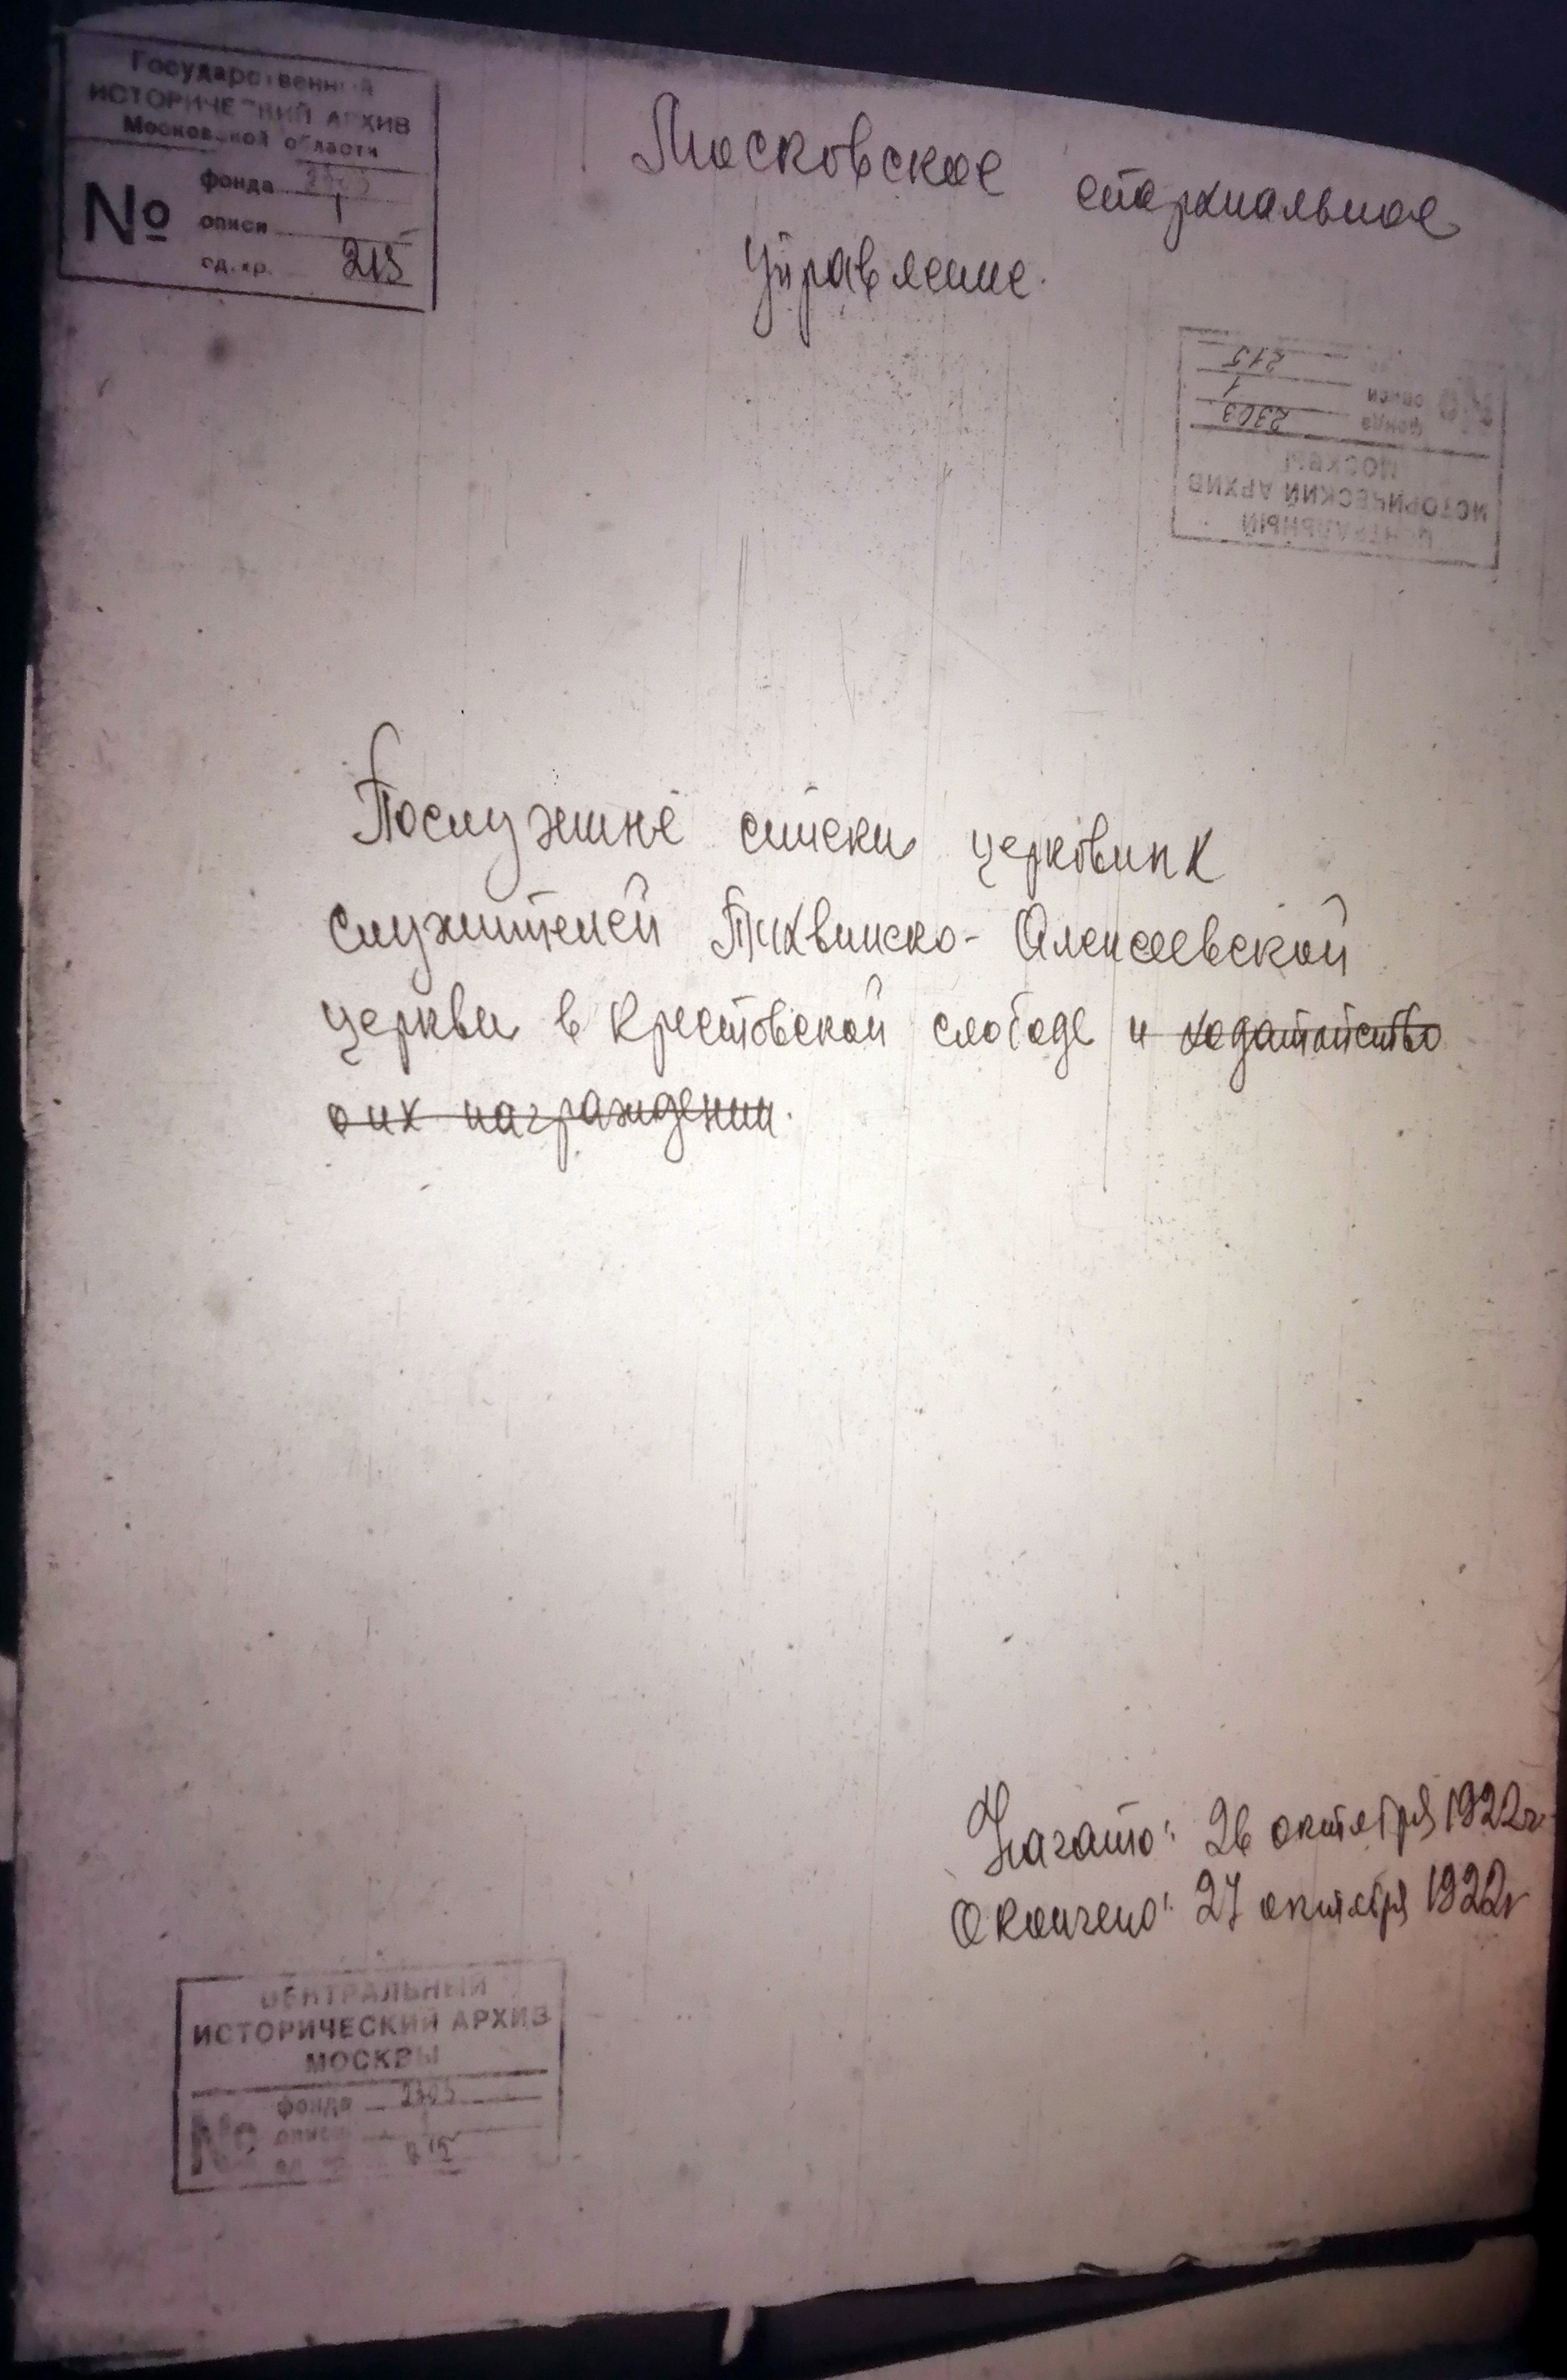 Государственный
ИСТОРИЧЕСКИЙ АРХИВ
Московской области
№
фонда 2303
описи 1
ед. хр. 215
Московское епархиальное
управление.
215
описи 1
фонда 2303
№
МОСКВЫ
ИСТОРИЧЕСКИЙ АРХИВ
ЦЕНТРАЛЬНЫЙ
Послужные списки церковных
служителей Тихвинско-Алексеевской
церкви в Крестовской слободе и ходатайство
о их награждении.
Начато: 26 октября 1922г.
Окончено: 27 октября 1922г
ЦЕНТРАЛЬНЫЙ
ИСТОРИЧЕСКИЙ АРХИВ
МОСКВЫ
№
фонда 2303
описи
215